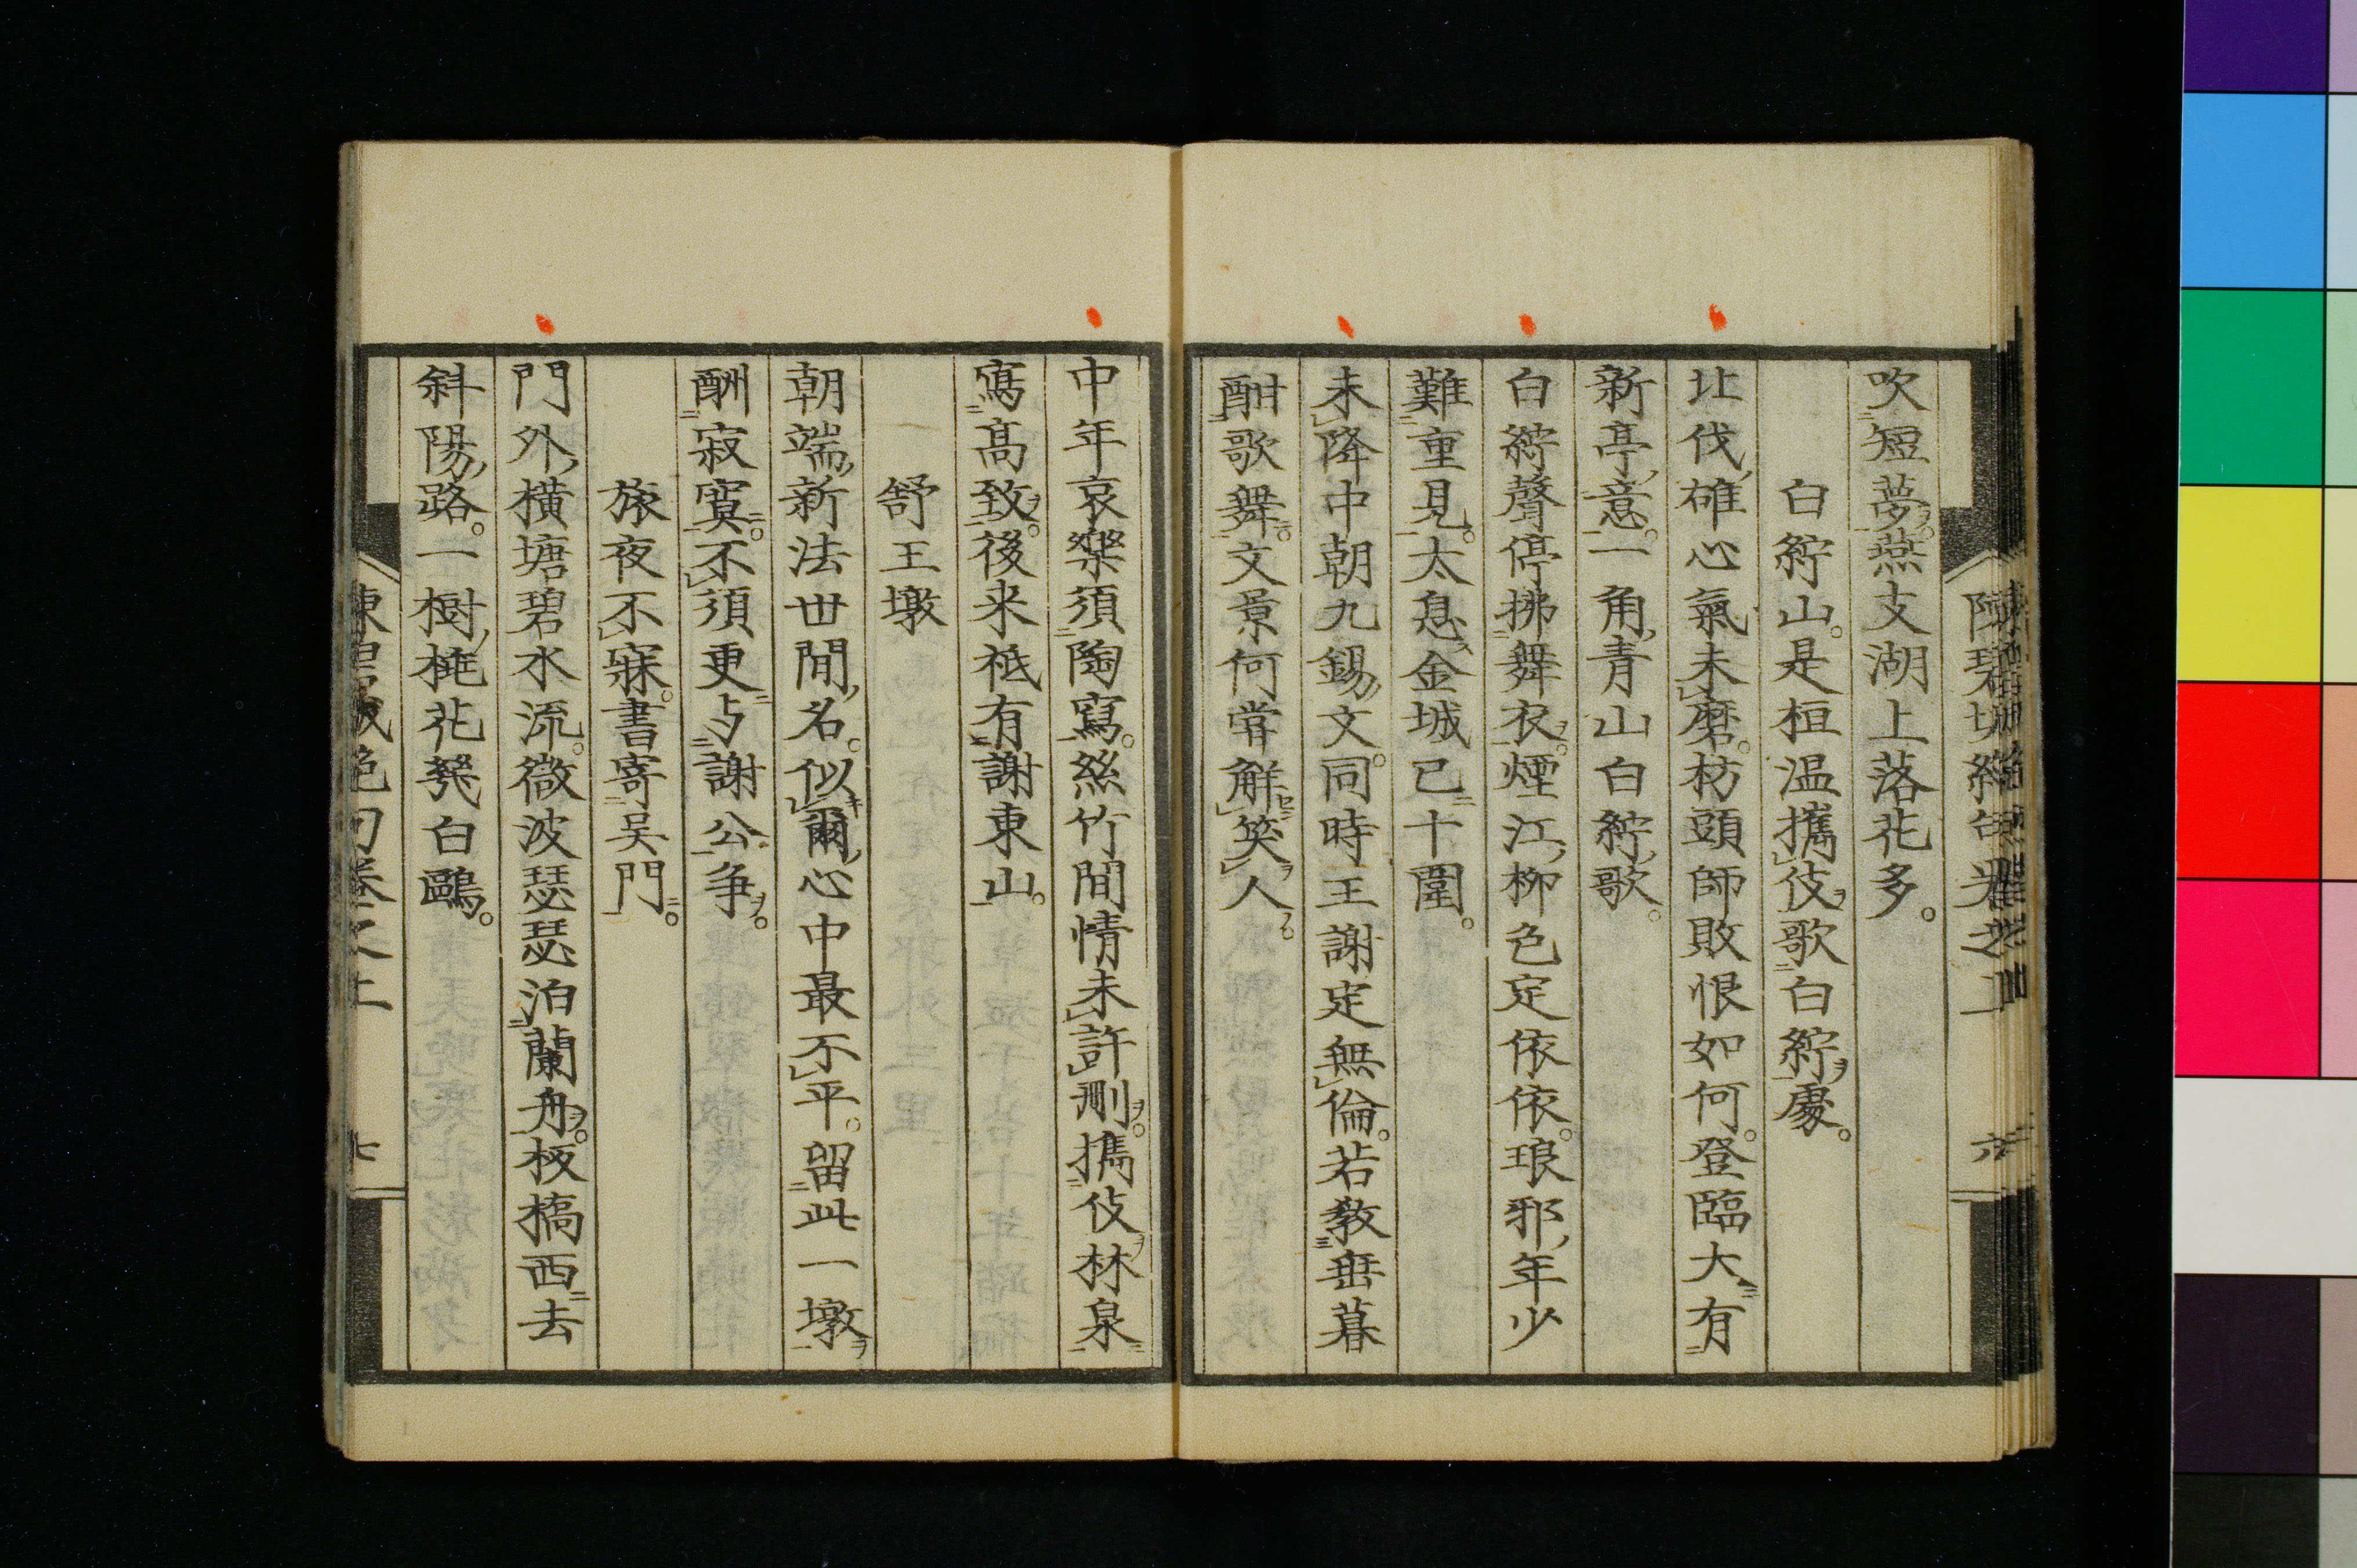 吹短夢。燕支湖上落花多。
白紵山。是桓温攜伎歌白紵處。
北伐雄心氣未磨。枋頭師敗恨如何。登臨大有
新亭意。一角青山白紵歌。
白紵聲停拂舞衣。煙江柳色定依依。琅邪年少
難重見。太息金城已十圍。
未降中朝九錫文。同時王謝定無倫。若教垂暮
酣歌舞。文景何嘗解笑人。
中年哀樂須陶寫。絲竹間情未許刪。攜伎林泉
寫高致。後来祇有謝東山。
舒王墩
朝端新法世間名。似爾心中最不平。留此一墩
酬寂寞。不須更与謝公争。
旅夜不寐。書寄吴門。
門外橫塘碧水流。微波瑟瑟泊蘭舟。板橋西去
斜陽路。一樹桃花発白鷗。
陳碧城絶句卷之上 六
陳碧城絶句卷之上 七